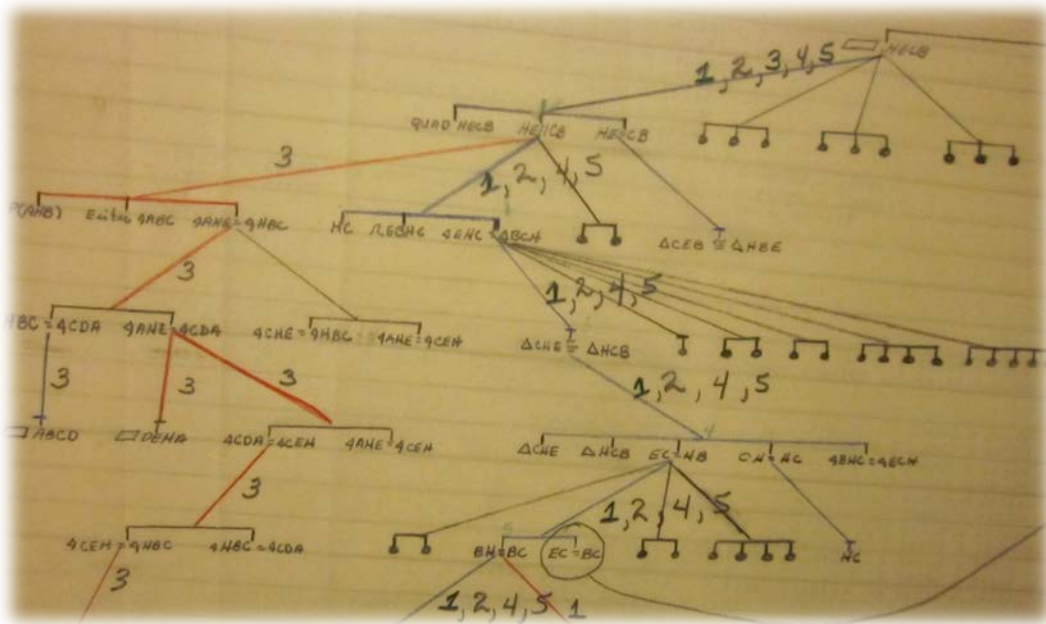 1, 2, 3, 4, 5 ▱ HECB
QUAD HECB HE||CB HE≅CB
3 1, 2, 4, 5
∢ABC ∢AHE=∢HBC HC ∢EHC=∢BCH △CEB≅△HBE
3 1, 2, 4, 5
HBC=∢CDA ∢AHE=∢CDA ∢CHE=∢HBC ∢AHE=∢CEH △CHE≅△HCB
3 3 3 1, 2, 4, 5
▱ABCD ▱DEHA ∢CDA=∢CEH ∢AHE=∢CEH △CHE △HCB EC=HB ∢BHC=∢ECH
3 1, 2, 4, 5
∢CEH=∢HBC ∢HBC=∢CDA BH=BC EC=BC HC
3 1, 2, 4, 5 1